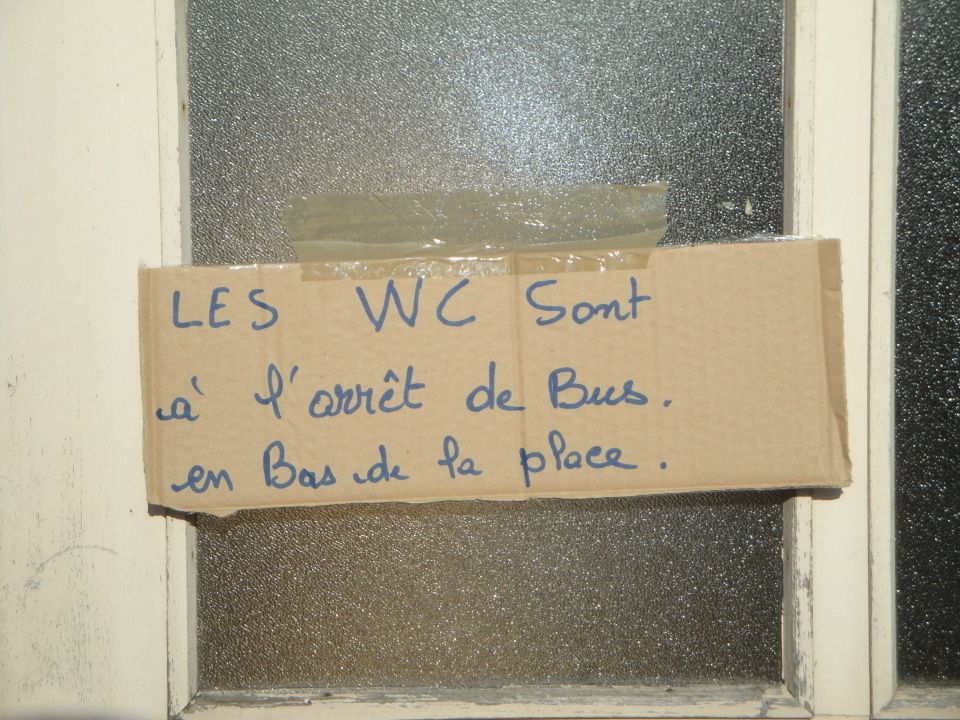 LES WC Sont
à l'arrêt de Bus.
en Bas de la place.